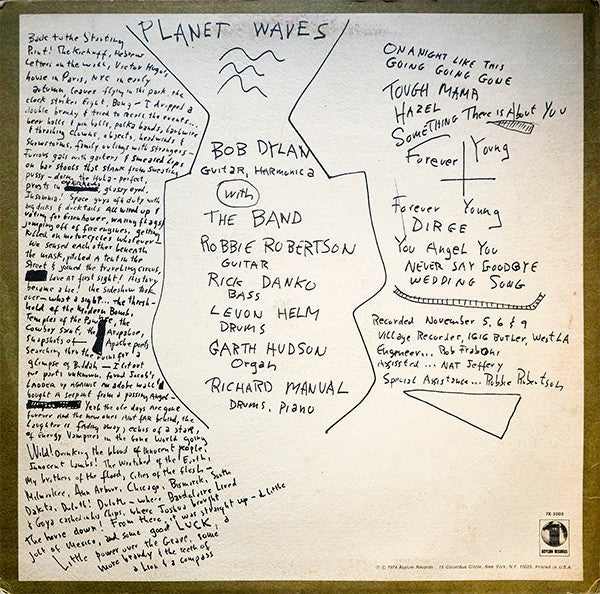 PLANET WAVES
Back to the Starting
Point! The Kickoff, Hebrew
Letters on the wall, Victor Hugo's
house in Paris, NYC in early
autumn, leaves flying in the park, the
clock strikes Eight, Bong — I dropped a
double brandy & tried to recall the events...
beer halls & pin balls, polka bands, barbwire
& thrashing clowns, objects, headwinds &
Snowstorms, family outings with strangers —
Furious gals with garters & smeared Lips
on bar stools that stank from sweating
pussy — doing the Hula — perfect,
priests in overhauls, glassy eyed,
Insomnia! Space guys off duty with
big dicks & ducktails All wired up &
voting for Eisenhower, waving flags &
jumping off of fire engines, getting
killed on motorcycles whatever —
We sensed each other beneath
the mask, pitched a tent in the
Street & joined the traveling circus,
Love at first sight! History
became a lie! the sideshow took
over — what a sight... the thresh-
hold of the Modern Bomb,
Temples of the Pawnee, the
Cowboy Saint, the Arapahoe,
Snapshots of Apache poets
Searching thru the ruins for a
glimpse of Buddah — I lit out
for parts unknown, found Jacob's
Ladder up against an adobe wall &
bought a serpent from a passing Angel —
Yeah the ole days are gone
forever And the new ones Aint far behind, the
Laughter is fading away, echos of a star,
of Energy Vampires in the Gone World going
Wild! Drinking the blood of innocent people,
Innocent Lambs! The Wretched of the Earth,
My brothers of the flood, Cities of the flesh —
Milwaukee, Ann Arbor, Chicago, Bismarck, South
Dakota, Duluth! Duluth — where Baudelaire Lived
& Goya cashed in his Chips, where Joshua brought
The house down! From there, it was straight up — a little
jolt of Mexico, and some good LUCK, a
Little power over the Grave, some
more brandy & the teeth of
a Lion & a Compass
BOB DYLAN
GUITAR, HARMONICA
with
THE BAND
ROBBIE ROBERTSON
GUITAR
RICK DANKO
BASS
LEVON HELM
DRUMS
GARTH HUDSON
Organ
RICHARD MANUAL
DRUMS, PIANO
ON A NIGHT LIKE THIS
GOING GOING GONE
TOUGH MAMA
HAZEL
SOMETHING There is About You
Forever Young
Forever Young
DIRGE
You Angel You
NEVER SAY GOODBYE
WEDDING SONG
Recorded November 5, 6 & 9
Village Recorder, 1616 Butler, West LA
Engineer... Rob Fraboni
Assisted... NAT Jeffery
Special Assistance... Robbie Robertson
7E-1003
ASYLUM RECORDS
℗ © 1974 Asylum Records, 15 Columbus Circle, New York, N.Y. 10023. Printed in U.S.A.